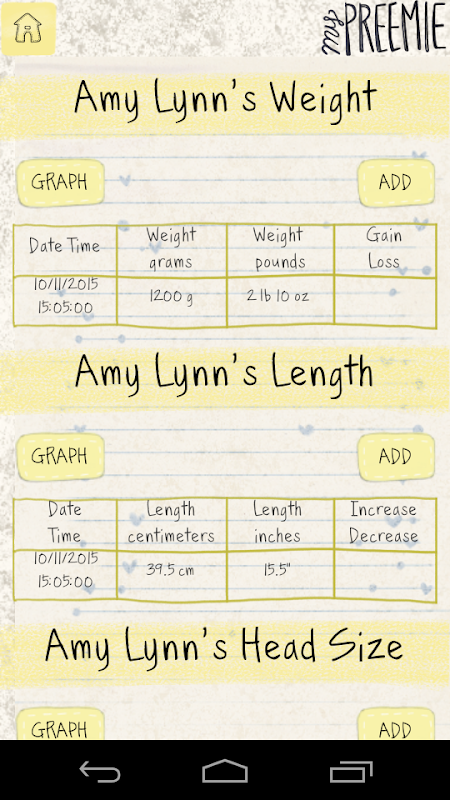 my PREEMIE
Amy Lynn's Weight
GRAPH ADD
Date Time Weight grams Weight pounds Gain Loss
10/11/2015 15:05:00 1200 g 2 lb 10 oz
Amy Lynn's Length
GRAPH ADD
Date Time Length centimeters Length inches Increase Decrease
10/11/2015 15:05:00 39.5 cm 15.5"
Amy Lynn's Head Size
GRAPH ADD